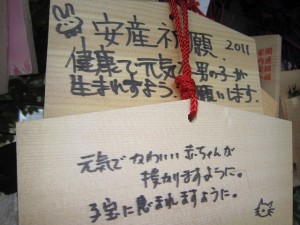 安産祈願 2011
健康で元気な男の子が
生まれますようお願いします。
元気でかわいい赤ちゃんが
授かりますように。
子宝に恵まれますように。